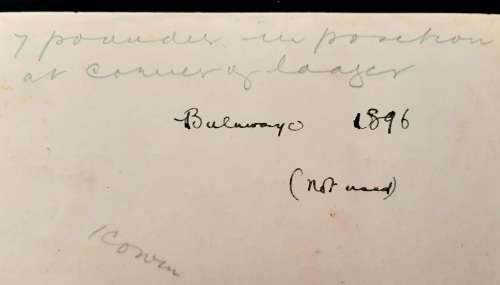 7 pounder in position
at corner of laager
Bulawayo 1896
(Not used)